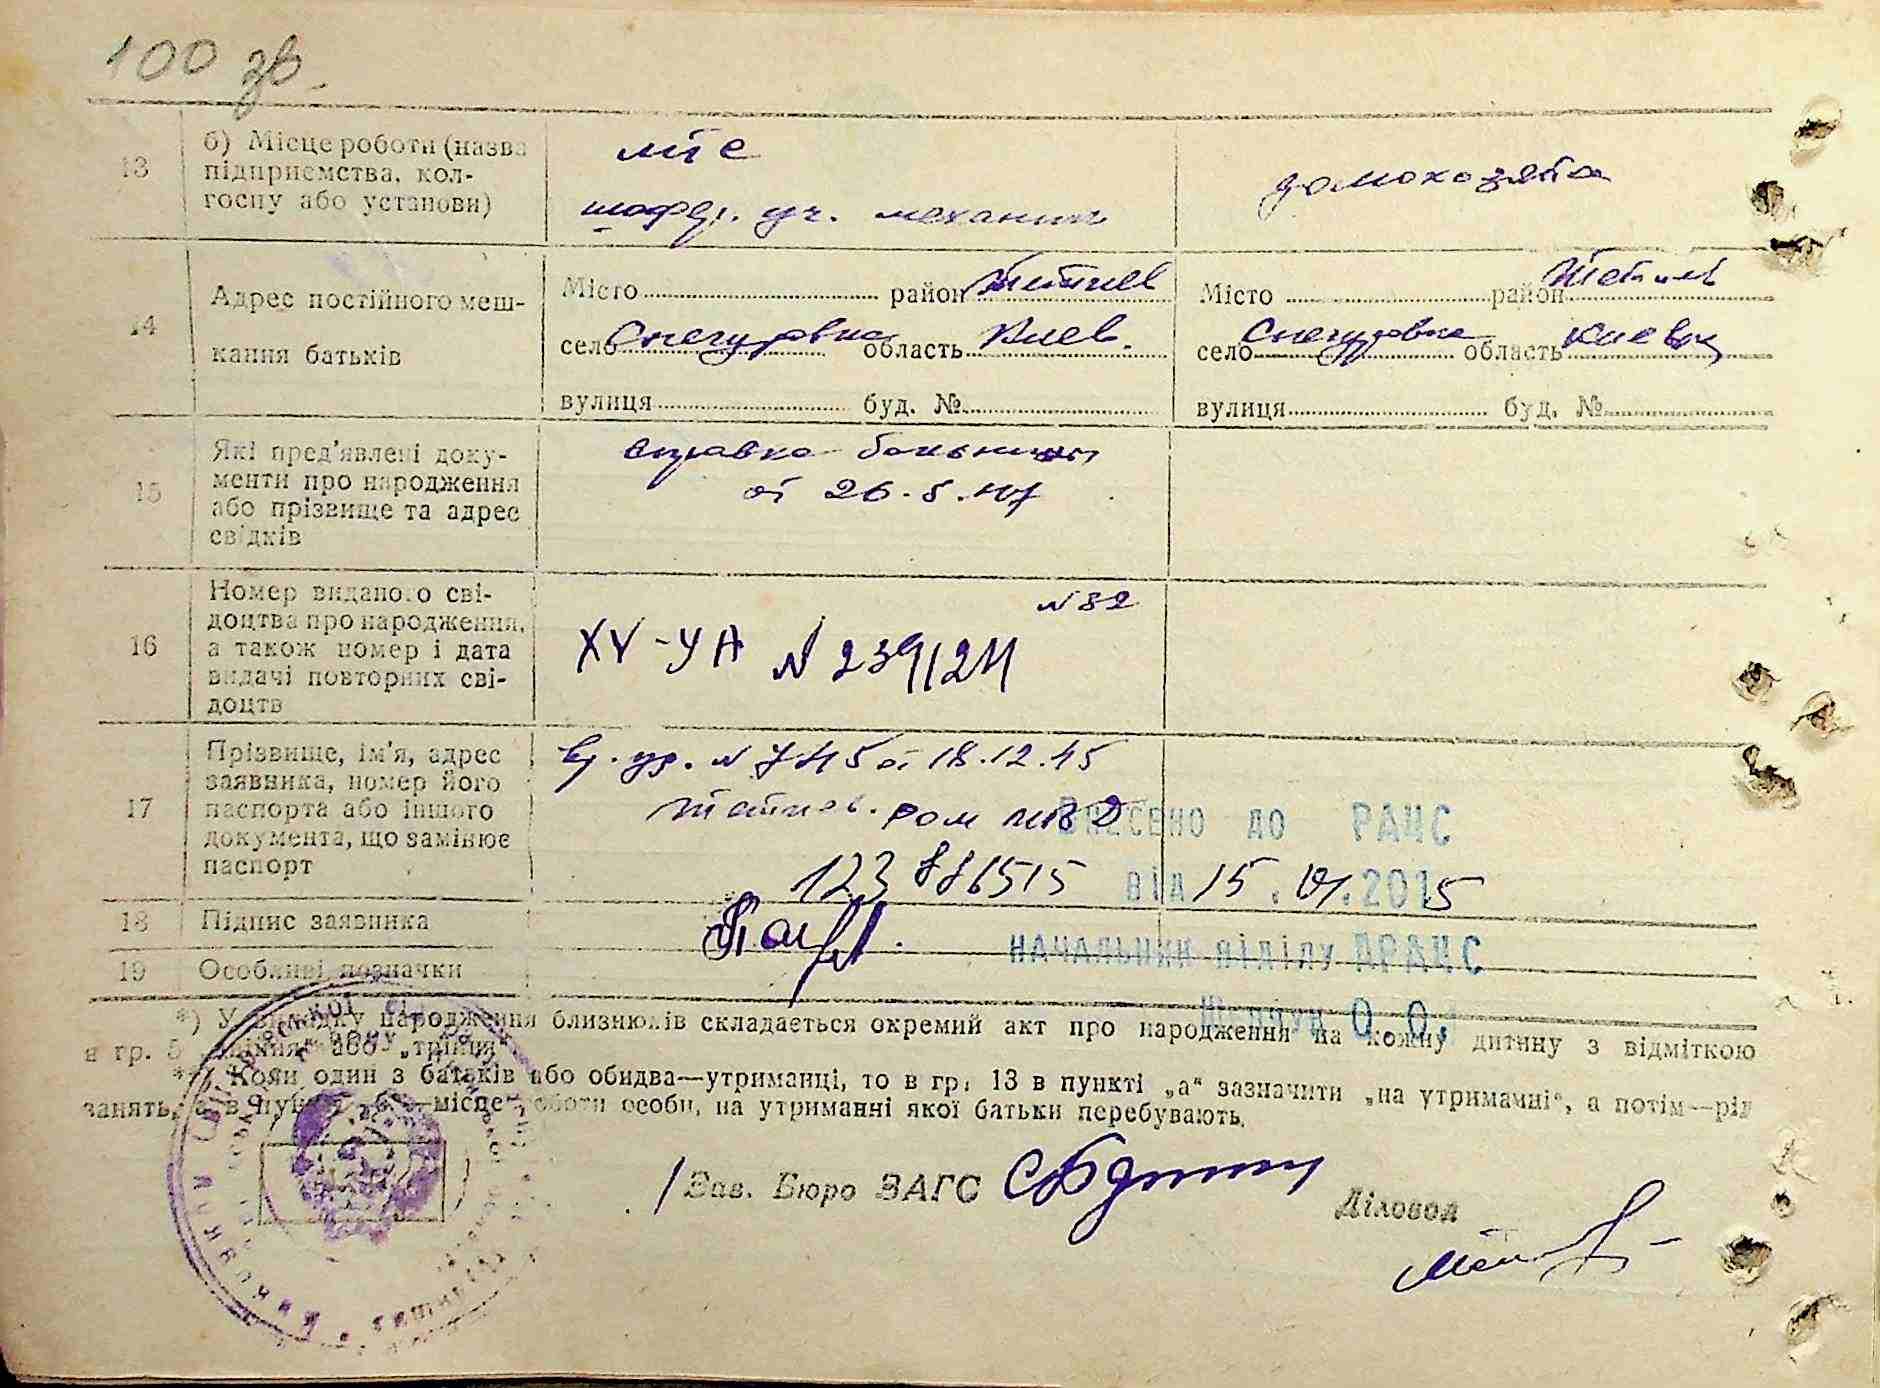 100 зв.
13
б) Місце роботи (назва
підприємства, кол-
госпу або установи)
мтс
шофер. уч. механик
домохозяйка
14
Адрес постійного меш-
кання батьків
Місто район Тетиев
село Снегуровка область Киев.
вулиця буд. №
Місто район Тетиев
село Снегуровка область Киевск
вулиця буд. №
15
Які пред'явлені доку-
менти про народження
або прізвище та адрес
свідків
справка больницы
от 26.5.47
16
Номер виданого сві-
доцтва про народження,
а також номер і дата
видачі повторних сві-
доцтв
N 32
XV-УА N 239124
17
Прізвище, ім'я, адрес
заявника, номер його
паспорта або іншого
документа, що замінює
паспорт
вр. уд. N 745 от 18.12.45
Тетиев. ром МВД
123 886515
ВНЕСЕНО ДО РАЦС
від 15.01.2015
НАЧАЛЬНИК відділу ДРАЦС
О.О.
18
Підпис заявника
19
Особливі позначки
*) У випадку народження близнюків складається окремий акт про народження на кожну дитину з відміткою
в гр. 5 „двійня" або „трійця"
**) Коли один з батьків або обидва—утриманці, то в гр. 13 в пункті „а" зазначити „на утриманні", а потім—рід
занять, а в пункті „б"—місце роботи особи, на утриманні якої батьки перебувають.
Зав. Бюро ЗАГС
Діловод